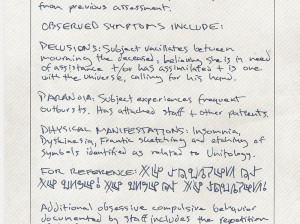 from previous assessment.
OBSERVED SYMPTOMS INCLUDE:
DELUSIONS: Subject vacillates between
mourning the deceased, believing she is in need
of assistance +/or has assimilated + is one
with the universe, calling for his hand.
PARANOIA: Subject experiences frequent
outbursts. Has attacked staff + other patients.
PHYSICAL MANIFESTATIONS: Insomnia,
Dyskinesia, Frantic sketching and etching of
symbols identified as related to Unitology.
FOR REFERENCE:
Additional obsessive compulsive behavior
documented by staff includes the repetition